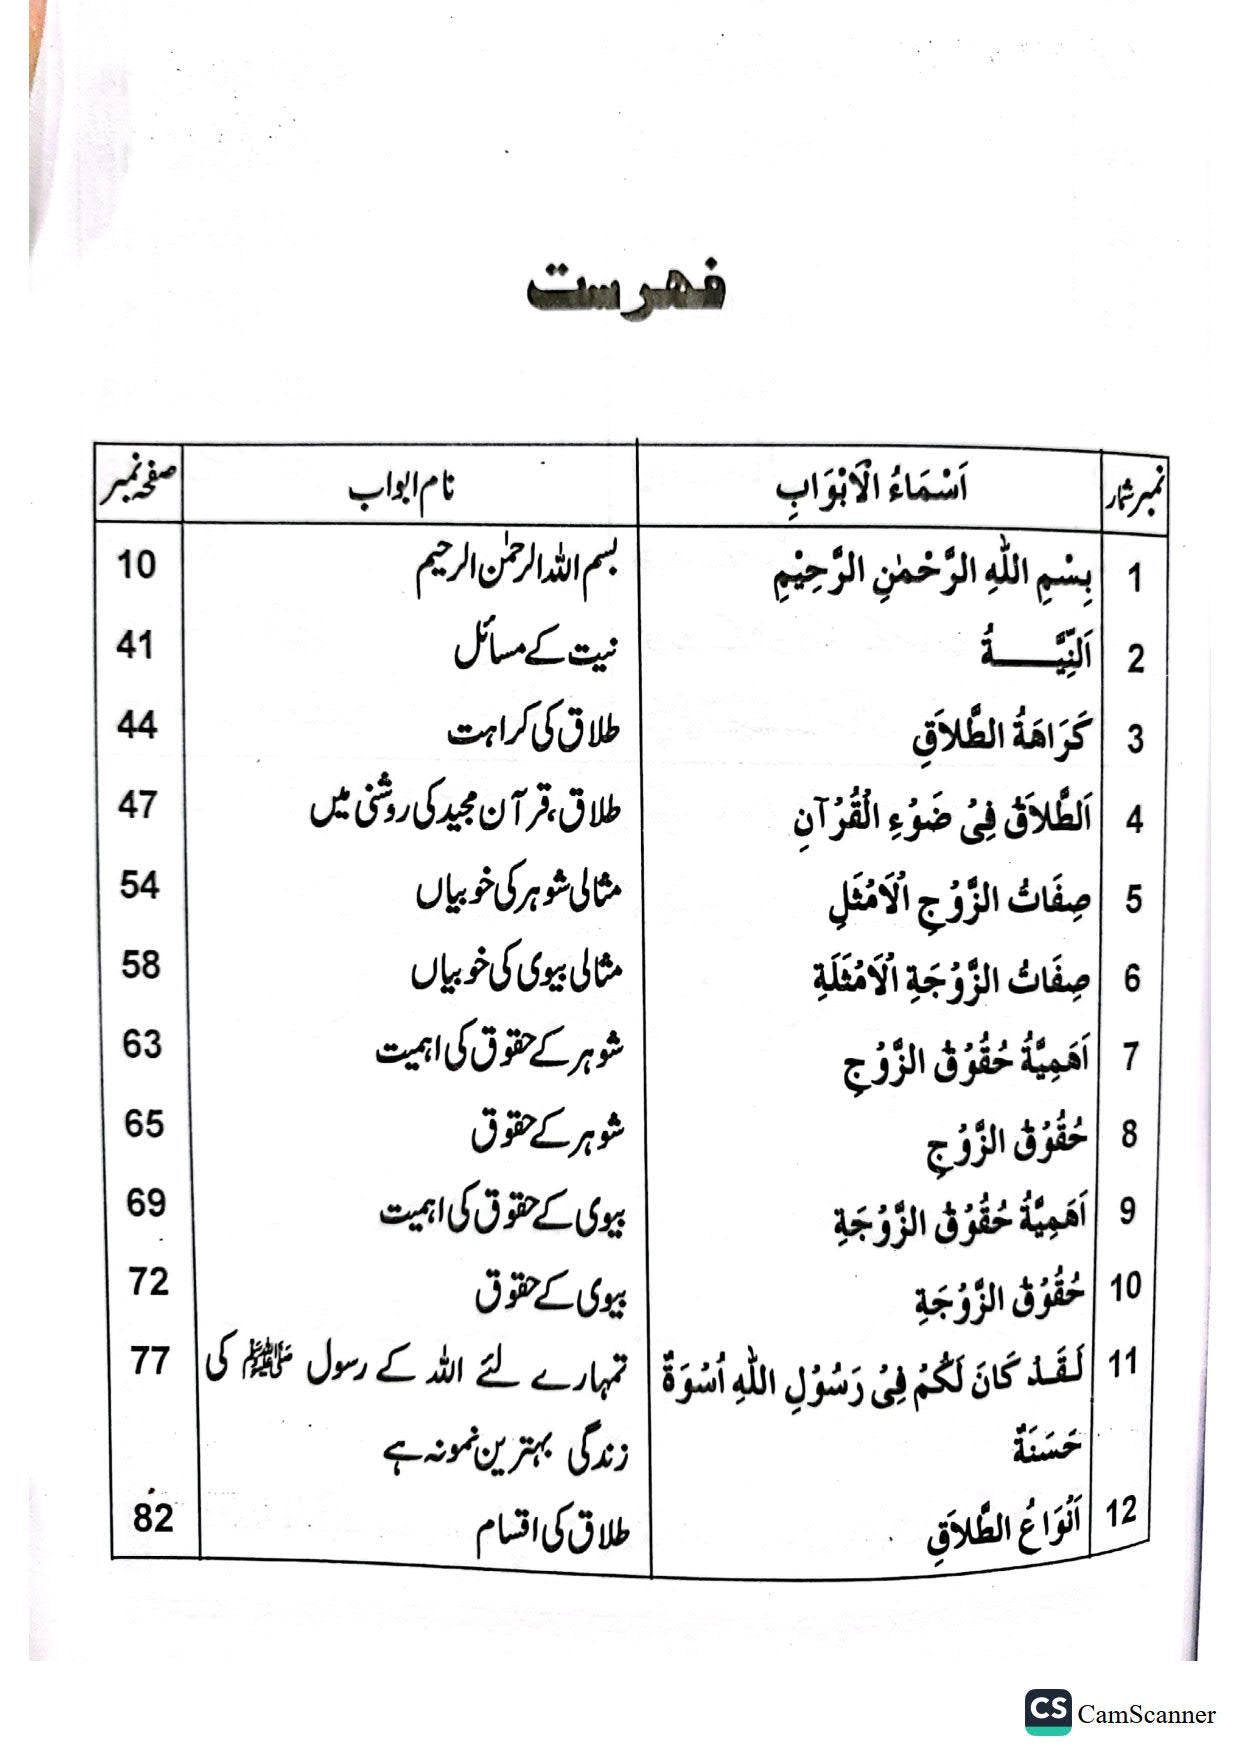 فهرست
نمبر شمار اَسْمَاءُ الْاَبْوَابِ نام ابواب صفحہ نمبر
1 بِسْمِ اللّٰهِ الرَّحْمٰنِ الرَّحِيْمِ بسم اللہ الرحمٰن الرحیم 10
2 اَلنِّيَّـــــةُ نیت کے مسائل 41
3 كَرَاهَةُ الطَّلاَقِ طلاق کی کراہت 44
4 اَلطَّلاَقُ فِىْ ضَوْءِ الْقُرْآنِ طلاق، قرآن مجید کی روشنی میں 47
5 صِفَاتُ الزَّوْجِ الْاَمْثَلِ مثالی شوہر کی خوبیاں 54
6 صِفَاتُ الزَّوْجَةِ الْاَمْثَلَةِ مثالی بیوی کی خوبیاں 58
7 اَهَمِيَّةُ حُقُوْقِ الزَّوْجِ شوہر کے حقوق کی اہمیت 63
8 حُقُوْقُ الزَّوْجِ شوہر کے حقوق 65
9 اَهَمِيَّةُ حُقُوْقِ الزَّوْجَةِ بیوی کے حقوق کی اہمیت 69
10 حُقُوْقُ الزَّوْجَةِ بیوی کے حقوق 72
11 لَقَدْ كَانَ لَكُمْ فِىْ رَسُوْلِ اللّٰهِ اُسْوَةٌ تمہارے لئے اللہ کے رسول ﷺ کی 77
حَسَنَةٌ زندگی بہترین نمونہ ہے
12 اَنْوَاعُ الطَّلاَقِ طلاق کی اقسام 82
CS CamScanner